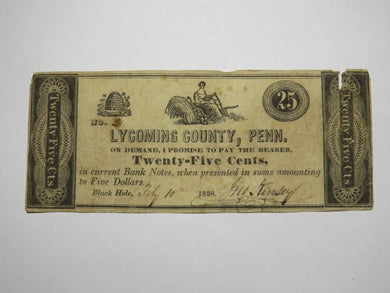 Twenty Five Cts
25
NO.
LYCOMING COUNTY, PENN.
ON DEMAND, I PROMISE TO PAY THE BEARER,
Twenty-Five Cents,
in current Bank Notes, when presented in sums amounting
to Five Dollars.
Black Hole, July 10 1838.
Twenty Five Cts